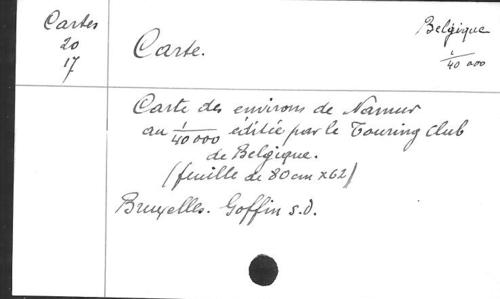 Cartes
20
17
Carte.
Belgique
1/40 000
Carte des environs de Namur
au 1/40 000 éditée par le Touring Club
de Belgique.
(feuille de 80cm x 62)
Bruxelles. Goffin s.d.